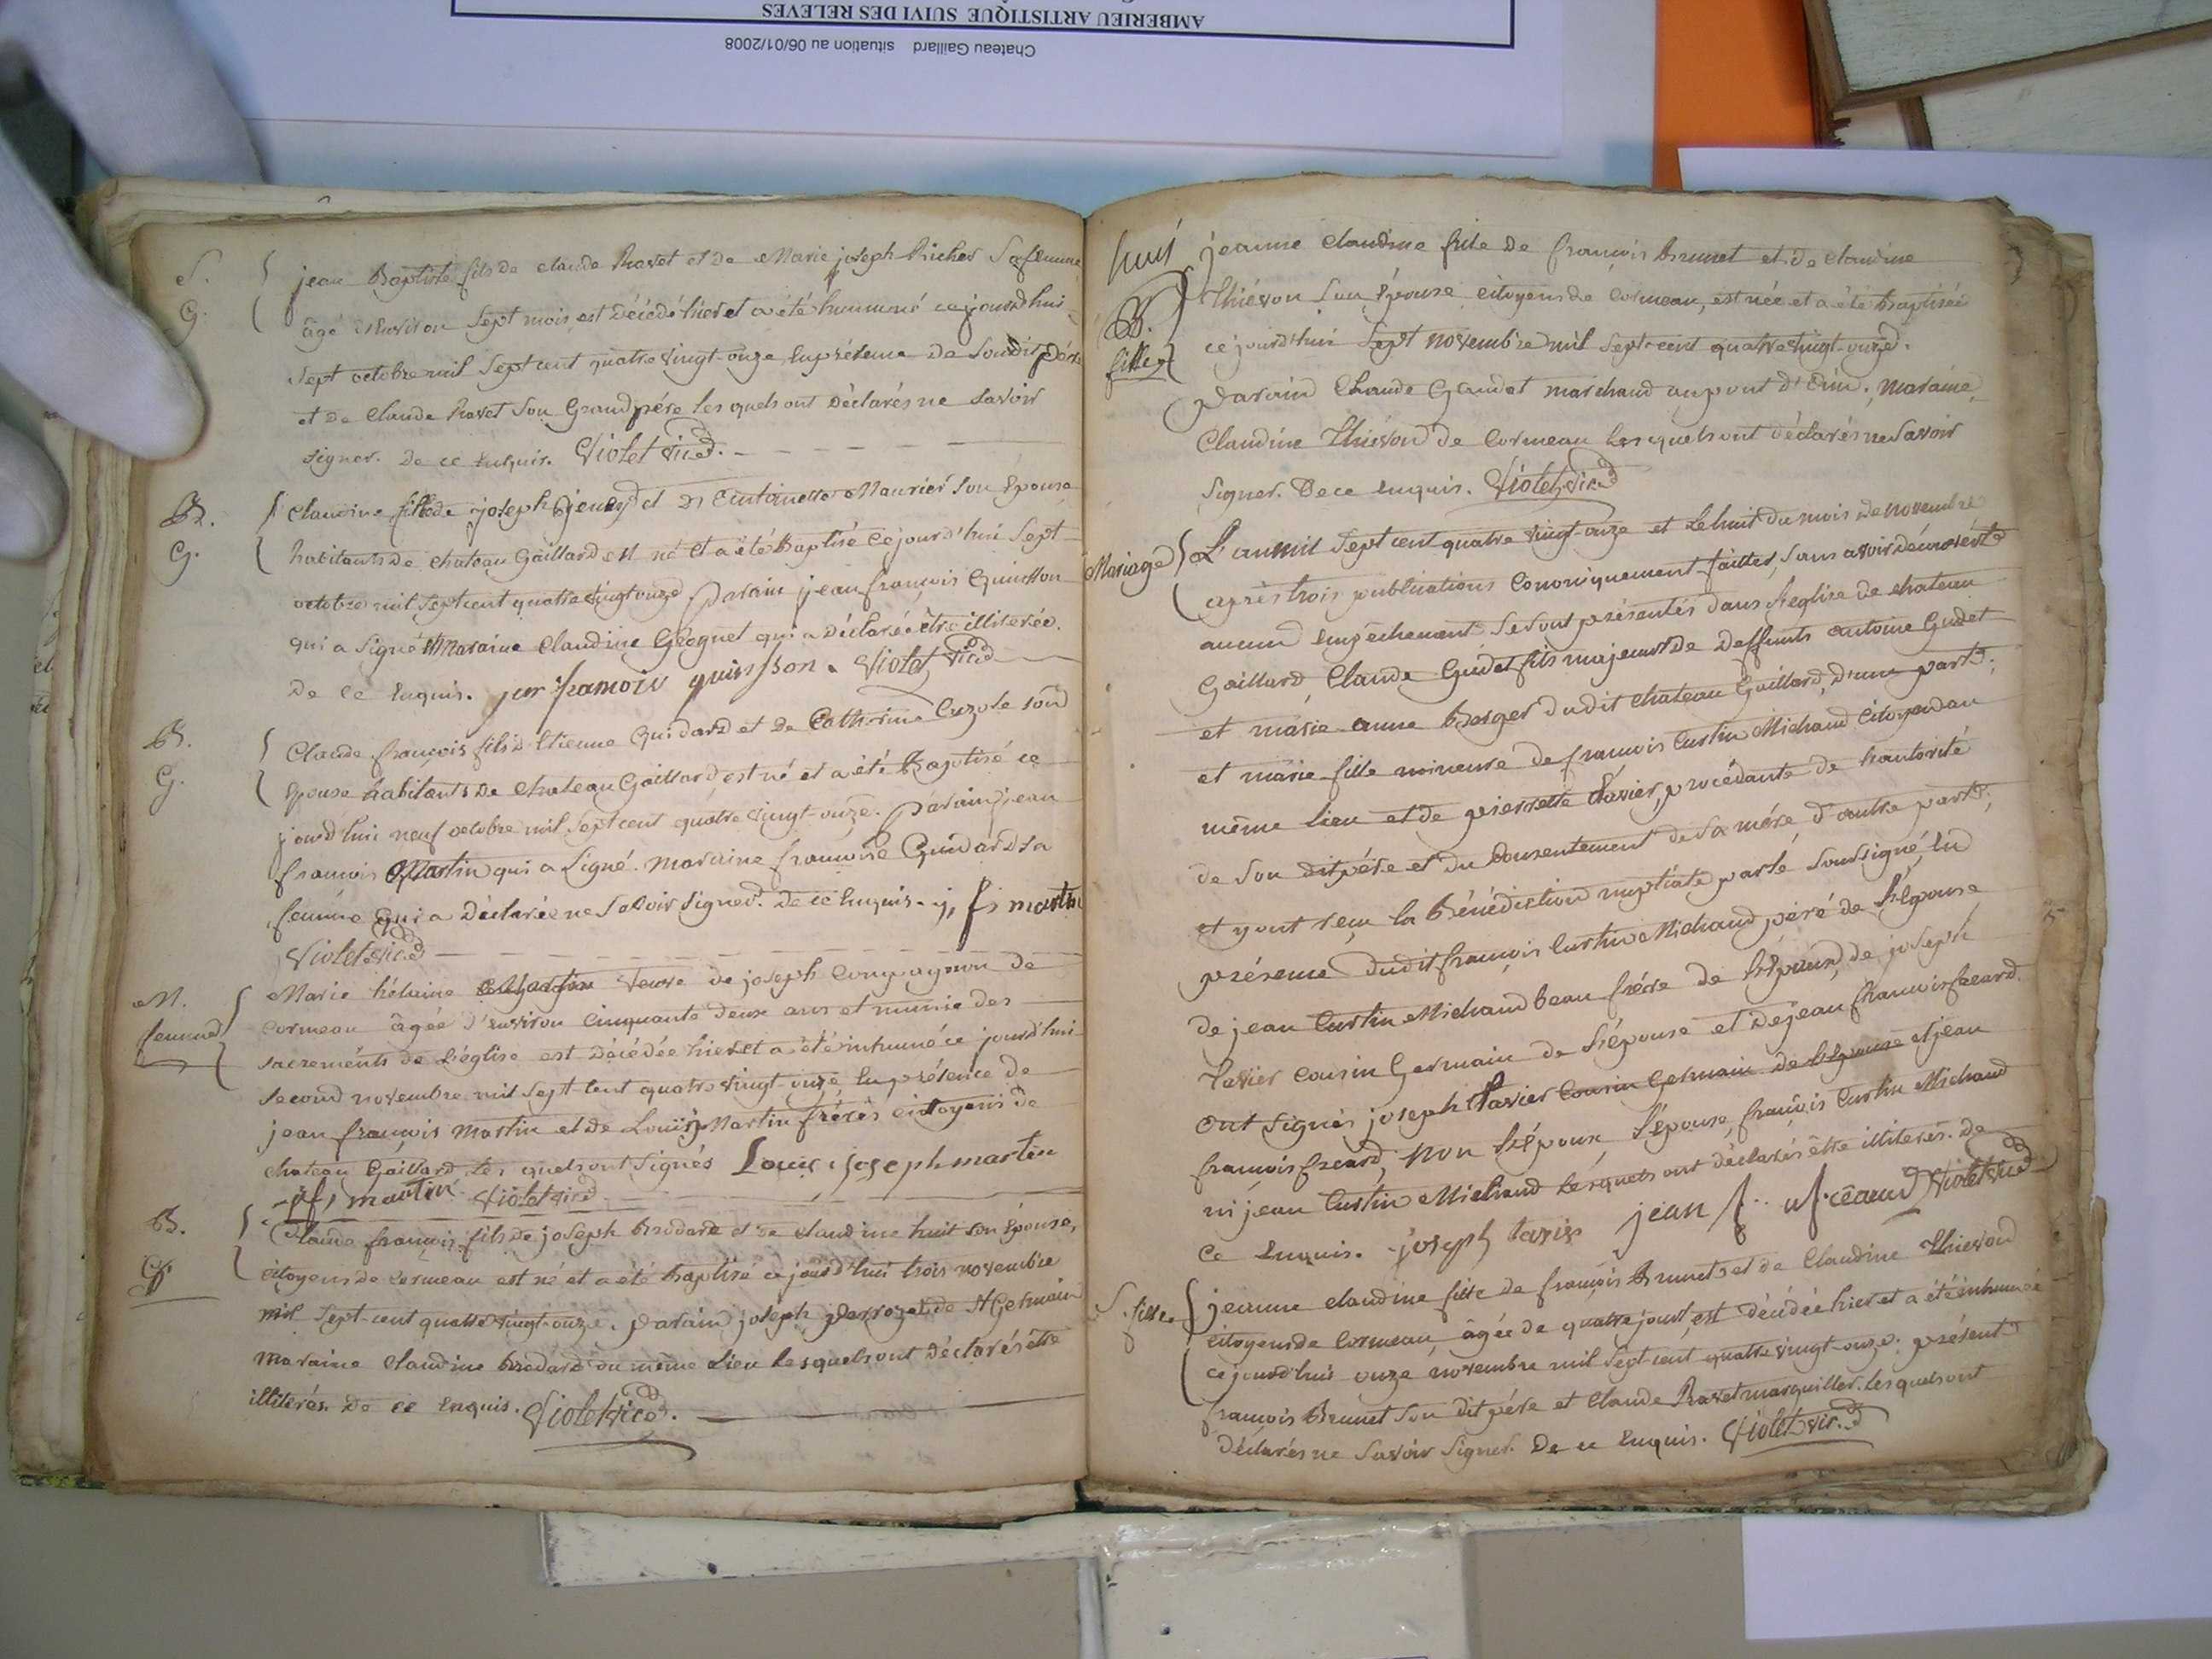 AMBERIEU ARTISTIQUE SUIVI DES RELEVES
Chateau Gaillard situation au 06/01/2008
S.
G.
jean Baptiste fils de claude Ravet et de Marie joseph Richer sa femme
âgé d'environ sept mois, est décédé hier et a été inhumé ce jourd'hui
sept octobre mil sept cent quatre vingt-onze en présence de son dit père
et de Claude Ravet son Grand père les quels ont déclarés ne savoir
signer. de ce enquis. Violet vic.
B.
G.
Claudine fille de joseph et d'Antoinette Maurier son épouse
habitants de chateau Gaillard est né et a été baptisé ce jourd'hui sept
octobre mil sept cent quatre vingt onze parain jean françois Quinsson
qui a signé maraine Claudine qui a déclarée être illiterée.
de ce enquis. jean françois quinsson. Violet vic.
B.
G.
Claude françois fils d'Etienne Guidard et de Catherine Cuzole son
épouse habitants de chateau Gaillard, est né et a été baptisé ce
jourd'hui neuf octobre mil sept cent quatre vingt-onze. parain jean
françois Martin qui a signé. maraine françoise Guidard sa
femme qui a déclarée ne savoir signer. de ce enquis. j, f, martin
Violet vic.
M.
femme
Marie hélaine Martin veuve de joseph Compagnon de
cormeau âgée d'environ cinquante deux ans et munie des
sacrements de l'église est décédée hier et a été inhumé ce jourd'hui
second novembre mil sept-cent quatre vingt-onze, en présence de
jean françois Martin et de Louis Martin frères citoyens de
chateau Gaillard les quels ont signés Louis joseph martin
jf, martin Violet vic.
B.
G.
Claude françois fils de joseph Brodard et de claudine huit son épouse,
citoyens de cormeau est né et a été baptisé ce jourd'hui trois novembre
mil sept-cent quatre vingt-onze. parain joseph perrozet de St Germain
maraine claudine brodard du même lieu lesquels ont déclarés être
illiterés. de ce enquis. Violet vic.
huit
B.
fille
jeanne claudine fille de françois Brunet et de claudine
Thiévon son épouse citoyens de cormeau, est née et a été baptisée
ce jourd'hui sept novembre mil sept-cent quatre vingt-onze.
parain Claude Gaudet marchand au pont d'Ain, maraine
Claudine Thiévon de cormeau lesquels ont déclarés ne savoir
signer. de ce enquis. Violet vic.
Mariage
L'an mil sept cent quatre vingt-onze et le huit du mois de novembre
après trois publications canoniquement faittes, sans avoir découvert
aucun empêchement se sont présentés dans l'église de chateau
Gaillard, Claude Gudet fils majeur de deffunts antoine Gudet
et marie anne Berger du dit chateau Gaillard, d'une part;
et marie fille mineure de françois Curtin Michaud citoyen du
même lieu et de pierrette Tavier, procédante de l'autorité
de son dit père et du consentement de sa mère d'autre part;
et y ont reçu la bénédiction nuptiale par le soussigné, en
présence dudit françois Curtin Michaud père de l'épouse
de jean Curtin Michaud beau frère de l'époux, de joseph
Tavier cousin Germain de l'épouse et de jean françois
ont signés joseph Tavier cousin Germain de l'épouse et jean
françois non l'époux, l'épouse, françois Curtin Michaud
ni jean Curtin Michaud lesquels ont déclarés être illiterés. de
ce enquis. joseph tavier jean f. Violet vic.
S. fille
jeanne claudine fille de françois Brunet et de Claudine Thiévon
citoyens de cormeau, âgée de quatre jours, est décédée hier et a été inhumée
ce jourd'hui onze novembre mil sept cent quatre vingt-onze: présents
françois Brunet son dit père et Claude Ravet marguiller. les quels ont
déclarés ne savoir signer. de ce enquis. Violet vic.